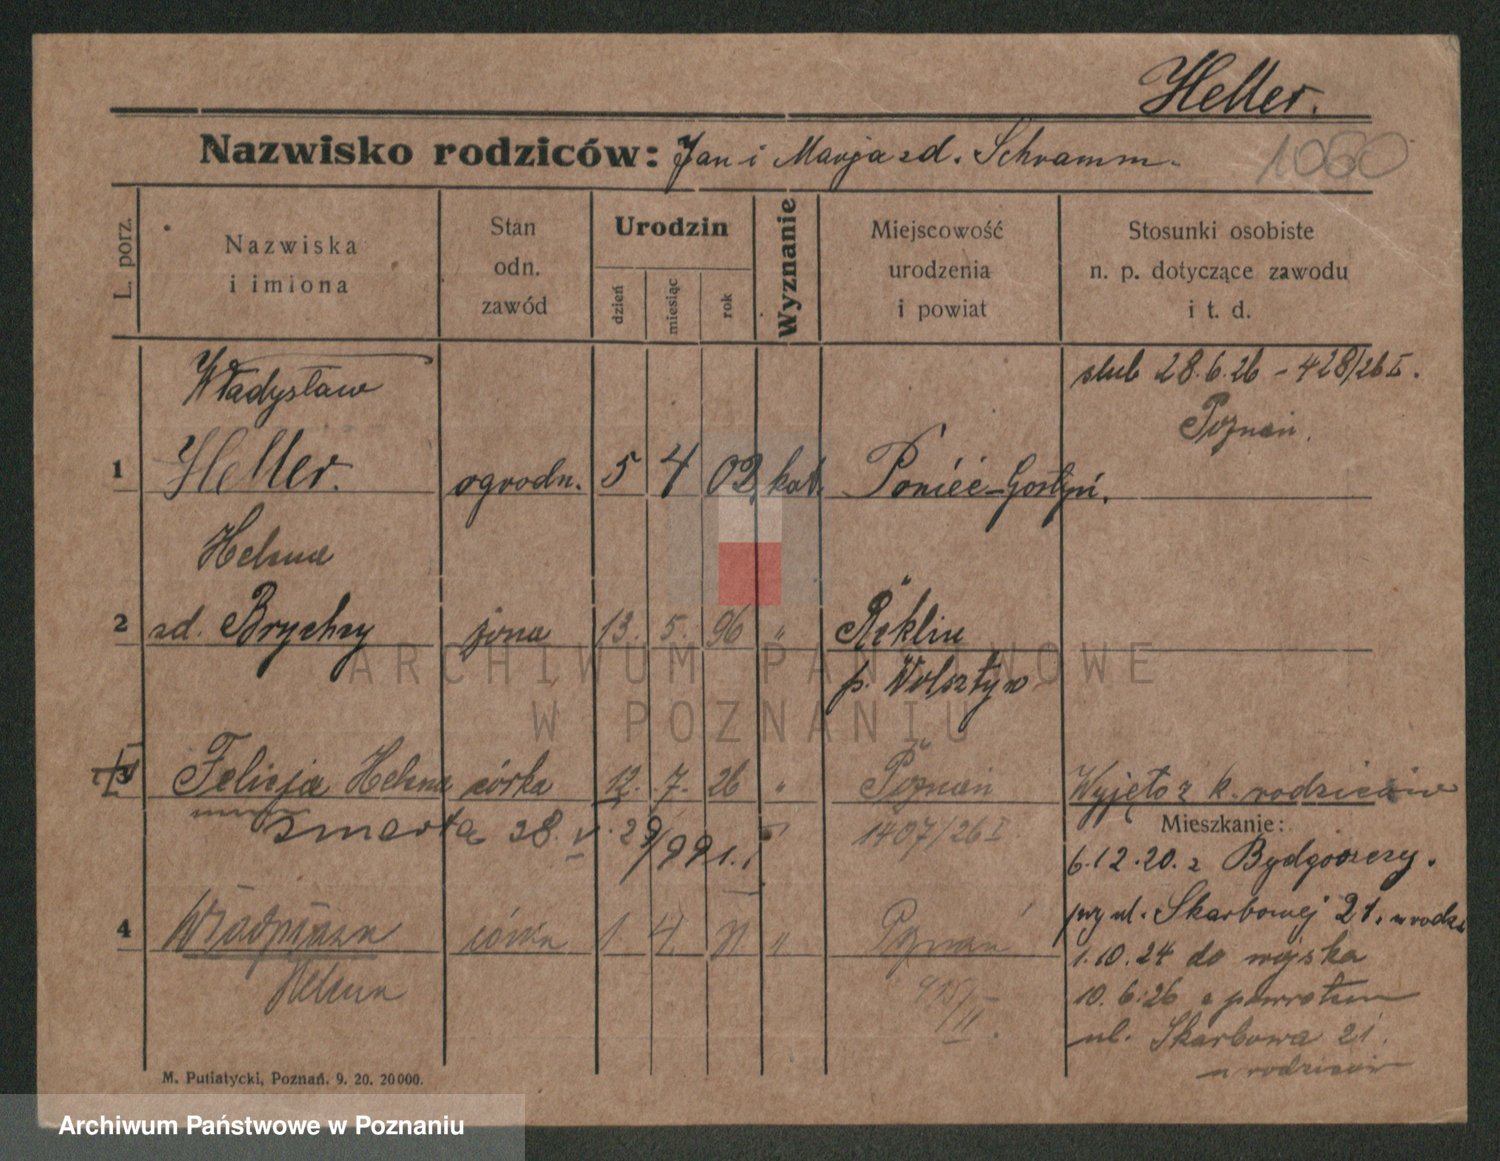 Heller.
Nazwisko rodziców: Jan i Marja zd. Schramm.
1060
L. porz.
Nazwiska
i imiona
Stan
odn.
zawód
Urodzin
dzień
miesiąc
rok
Wyznanie
Miejscowość
urodzenia
i powiat
Stosunki osobiste
n. p. dotyczące zawodu
i t. d.
Władysław
ślub 28.6.26 - 428/26 I.
Poznań.
1 Heller. ogrodn. 5 4 02 kat. Poniéc-Gostyń.
Helena
2 zd. Brychzy żona 13. 5. 96 " Reklin
p. Wolsztyn
3 Felicja Helena córka 12. 7. 26 " Poznań Wyjęto z k. rodziców
zmarła 28. V. 29/991. I
1407/26 I
Mieszkanie:
6.12.20. z Bydgoszczy.
przy ul. Skarbowej 21. u rodz.
4 córka 1 4 " Poznań
Helena
1.10.24 do wojska
10.6.26 z powrotem
ul. Skarbowa 21.
u rodziców
M. Putiatycki, Poznań. 9. 20. 20000.
ARCHIWUM PAŃSTWOWE
W POZNANIU
Archiwum Państwowe w Poznaniu